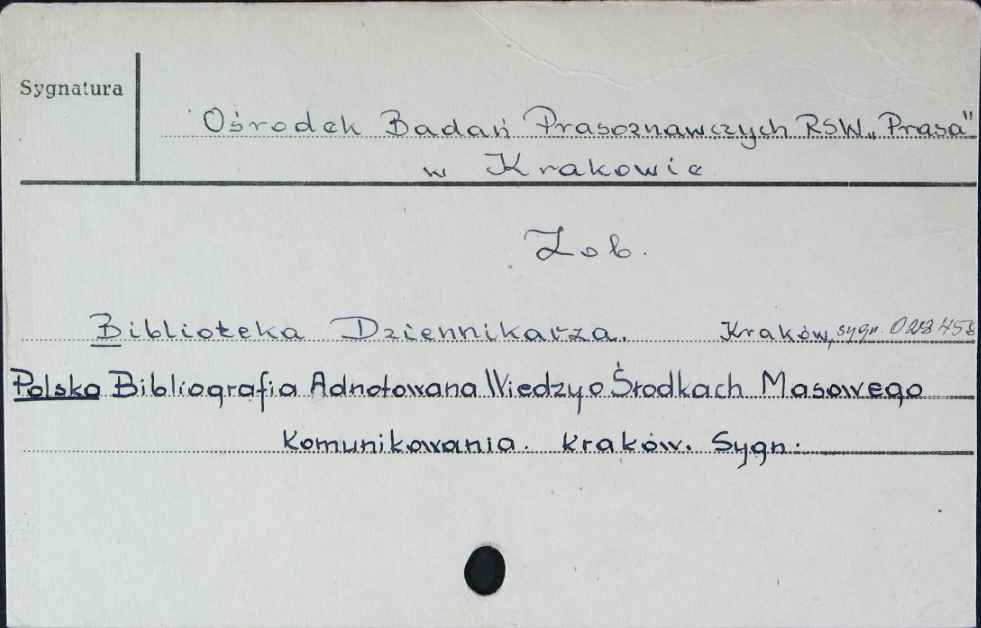 Sygnatura
Ośrodek Badań Prasoznawczych RSW „Prasa"
w Krakowie
Zob.
Biblioteka Dziennikarza. Kraków, sygn.
Polska Bibliografia Adnotowana Wiedzy o Środkach Masowego
Komunikowania. Kraków. Sygn: